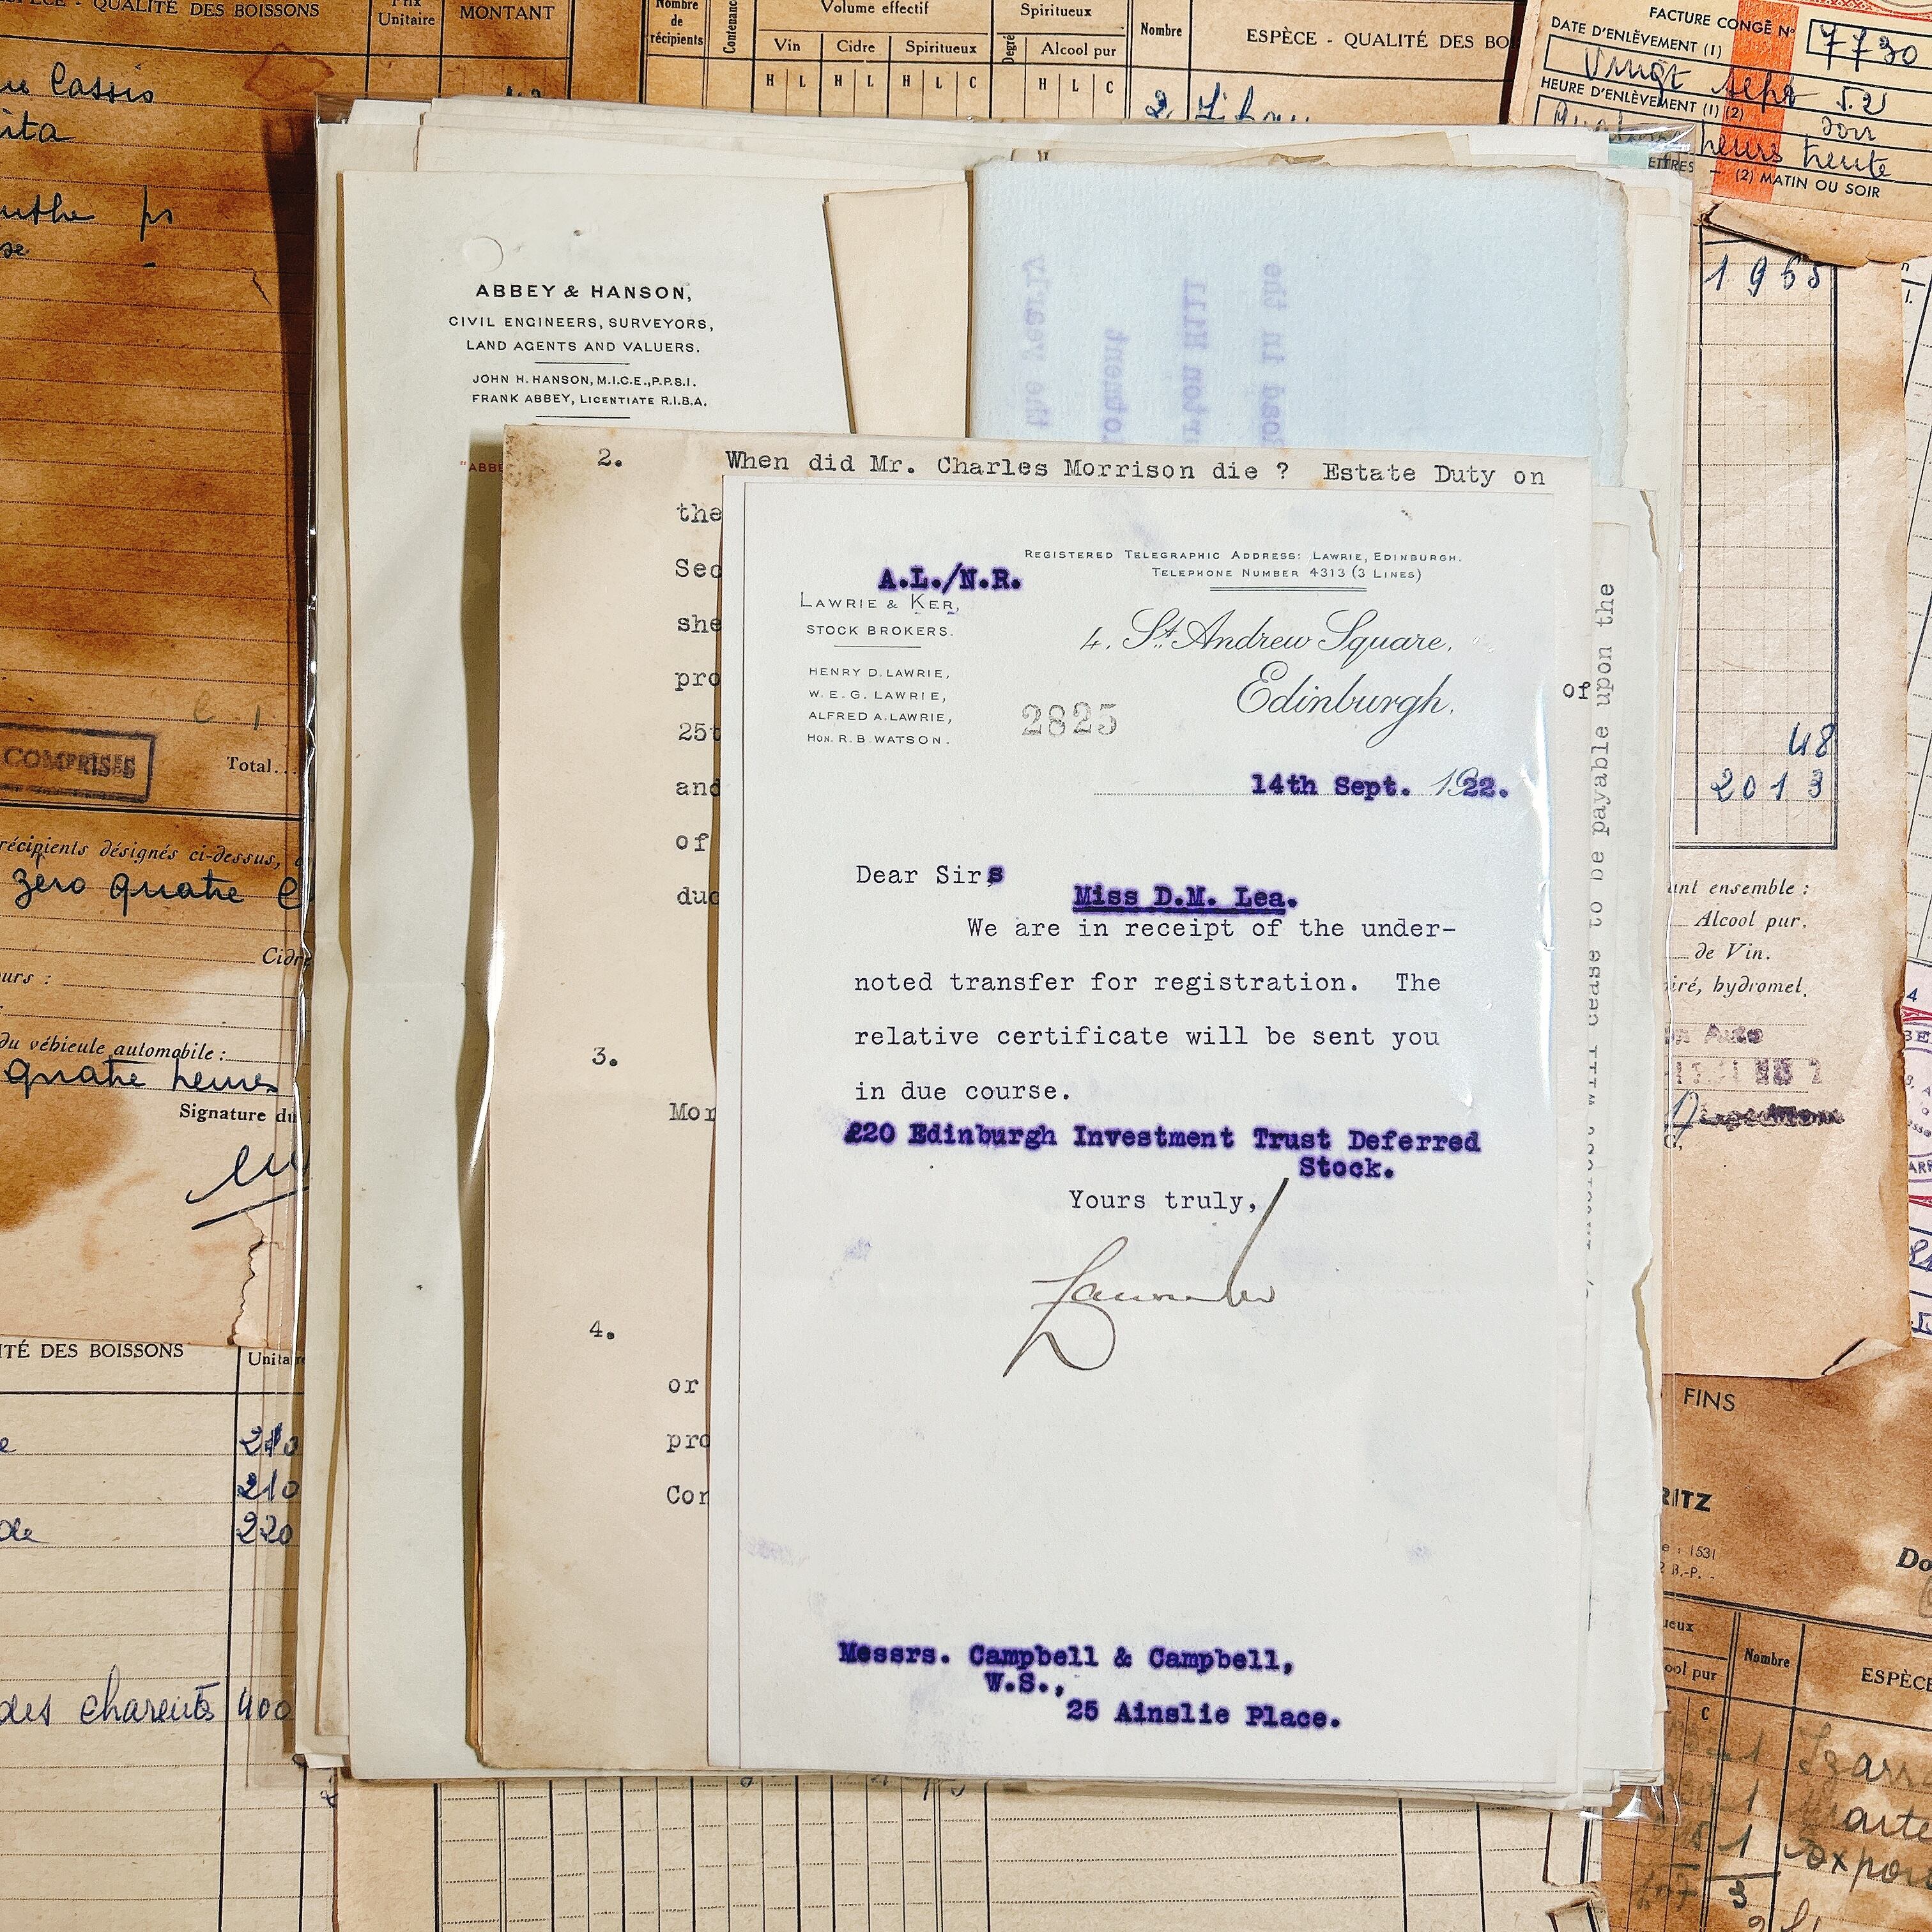 ESPÈCE - QUALITÉ DES BOISSONS
Prix
Unitaire
MONTANT
Nombre
de
récipients
Contenance
Volume effectif
Vin
Cidre
Spiritueux
H L H L H L C
Spiritueux
Degré
Alcool pur
H L C
Nombre
ESPÈCE - QUALITÉ DES BO
2
FACTURE CONGÉ N°
7730
DATE D'ENLÈVEMENT (1)
Vingt sept 52
HEURE D'ENLÈVEMENT (1) (2)
heures trente
(2) MATIN OU SOIR
Cassis
1965
48
2013
COMPRISES
Total...
récipients désignés ci-dessus,
zéro quatre
Cidre
du véhicule automobile :
quatre heures
Signature du
ABBEY & HANSON,
CIVIL ENGINEERS, SURVEYORS,
LAND AGENTS AND VALUERS.
JOHN H. HANSON, M.I.C.E., P.P.S.I.
FRANK ABBEY, LICENTIATE R.I.B.A.
"ABBE
the yearly
otment
arton Hill
Road in the
2. When did Mr. Charles Morrison die ? Estate Duty on
the
Sec
she
pro
25t
and
of
duc
of
3.
Mor
4.
or
pro
Con
cease to be payable upon the
A.L./N.R.
REGISTERED TELEGRAPHIC ADDRESS: LAWRIE, EDINBURGH.
TELEPHONE NUMBER 4313 (3 LINES)
LAWRIE & KER,
STOCK BROKERS.
HENRY D. LAWRIE,
W. E. G. LAWRIE,
ALFRED A. LAWRIE,
HON. R. B. WATSON.
4. St. Andrew Square,
Edinburgh.
2825
14th Sept. 1922.
Dear Sirs
Miss D.M. Lea.
We are in receipt of the under-
noted transfer for registration. The
relative certificate will be sent you
in due course.
£20 Edinburgh Investment Trust Deferred
Stock.
Yours truly,
Messrs. Campbell & Campbell,
W.S.,
25 Ainslie Place.
ant ensemble :
Alcool pur.
de Vin.
iré, hydromel.
ITÉ DES BOISSONS
Unitaire
210
210
220
des charentes 400
FINS
RITZ
: 1531
Do
Nombre
ESPÈCE
ool pur
C
1
1
1
3